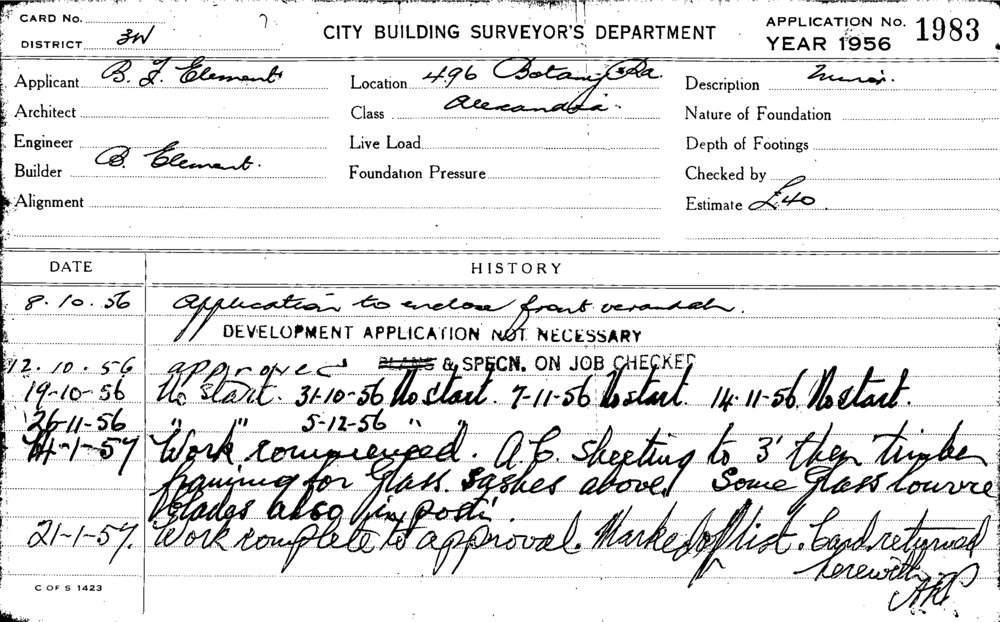 CARD No. ?
DISTRICT 3W
CITY BUILDING SURVEYOR'S DEPARTMENT
APPLICATION No. 1983
YEAR 1956
Applicant B. J. Element
Location 496 Botany Rd.
Description
Architect
Class Alexandria.
Nature of Foundation
Engineer
Live Load
Depth of Footings
Builder B. Element.
Foundation Pressure
Checked by
Alignment
Estimate £40.
DATE HISTORY
8.10.56 Application to enclose front verandah.
DEVELOPMENT APPLICATION NOT NECESSARY
12.10.56 approved PLANS & SPECN. ON JOB CHECKED
19-10-56 No start. 31-10-56 No start. 7-11-56 No start. 14-11-56 No start.
26-11-56 " " 5-12-56 " "
14-1-57 Work commenced. A.C. sheeting to 3' then timber
framing for Glass sashes above. Some Glass louvre
blades also in posti.
21-1-57. Work complete to approval. Marked off list. Card returned
herewith.
C OF S 1423